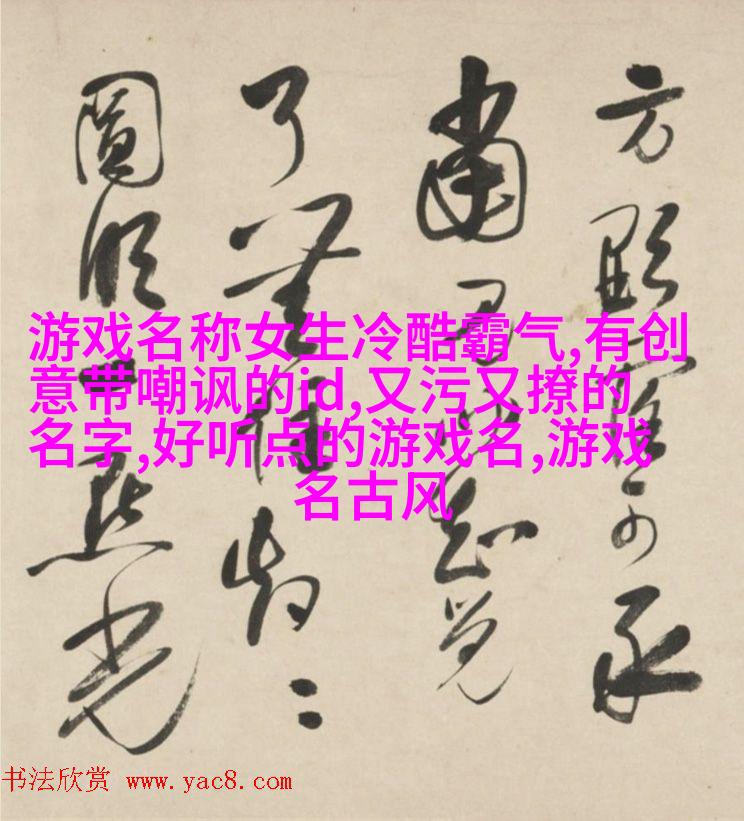 方可承
知覺
了無
圓明一點光
游戏名称女生冷酷霸气,有创
意带嘲讽的id,又污又撩的
名字,好听点的游戏名,游戏
名古风
书法欣赏 www.yac8.com